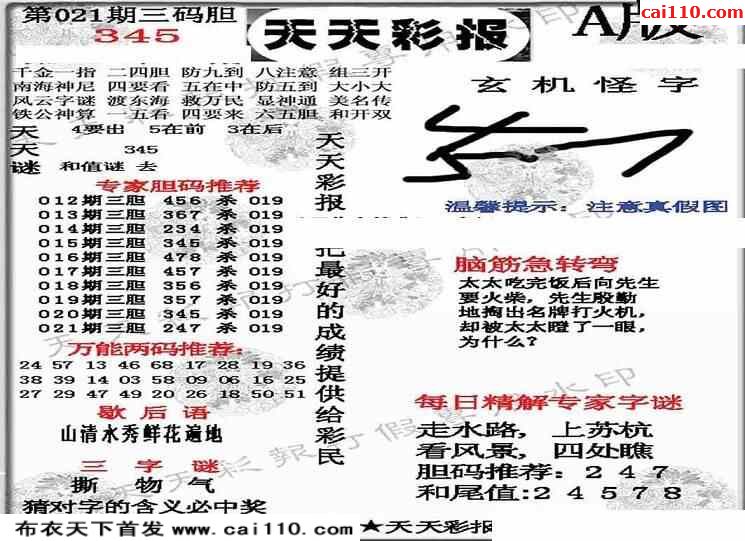 第021期三码胆
345
天天彩报
A版
cai110.com
千金一指 二四胆 防九到 八注意 组三开
南海神尼 四要看 五在中 防五到 大小大
风云字谜 渡东海 救万民 显神通 美名传
铁公神算 一五看 四要来 六五胆 和开双
天 4要出 5在前 3在后
天 345
谜 和值谜 去
专家胆码推荐
012期三胆 456 杀 019
013期三胆 367 杀 019
014期三胆 234 杀 019
015期三胆 345 杀 019
016期三胆 478 杀 019
017期三胆 457 杀 019
018期三胆 356 杀 019
019期三胆 357 杀 019
020期三胆 345 杀 019
021期三胆 247 杀 019
万能两码推荐:
24 57 13 46 68 17 28 19 36
38 39 14 03 58 09 06 16 25
27 29 47 49 20 26 18 50 51
歇后语
山清水秀鲜花遍地
三字谜
撕 物 气
猜对字的含义必中奖
天天彩报
把最好的成绩提供给彩民
玄机怪字
温馨提示: 注意真假图
脑筋急转弯
太太吃完饭后向先生
要火柴,先生殷勤
地掏出名牌打火机,
却被太太瞪了一眼,
为什么?
每日精解专家字谜
走水路, 上苏杭
看风景, 四处瞧
胆码推荐: 2 4 7
和尾值:2 4 5 7 8
布衣天下首发 www.cai110.com ★天天彩报